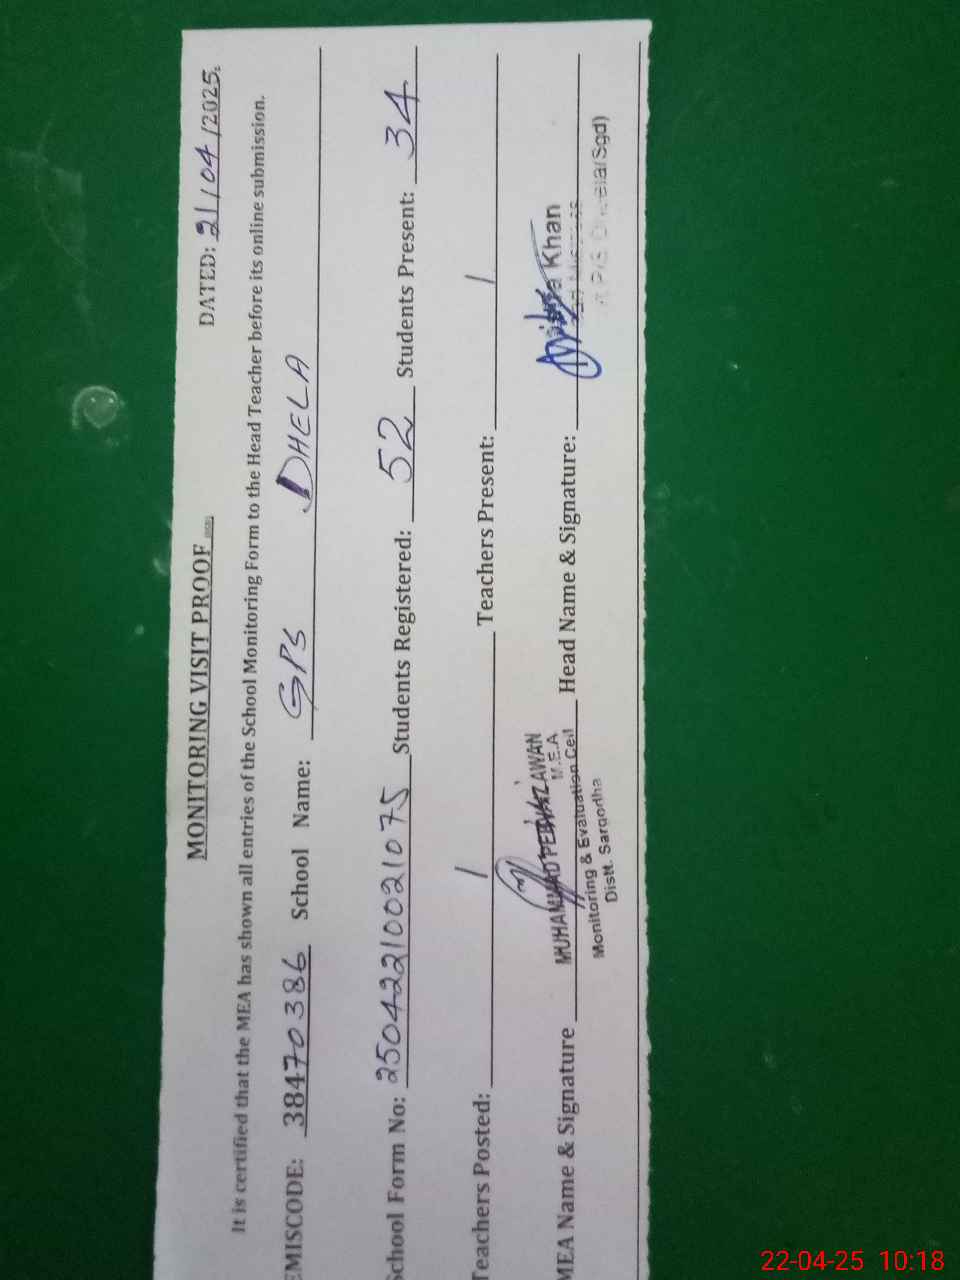 MONITORING VISIT PROOF
DATED: 21/04/2025.
It is certified that the MEA has shown all entries of the School Monitoring Form to the Head Teacher before its online submission.
EMISCODE: 38470386 School Name: GPS DHELA
School Form No: 25042210021075 Students Registered: 52 Students Present: 34
Teachers Posted: 1 Teachers Present: 1
MEA Name & Signature Head Name & Signature:
MUHAMMAD PERVAIZ AWAN
M.E.A
Monitoring & Evaluation Cell
Distt. Sargodha
Khan
22-04-25 10:18